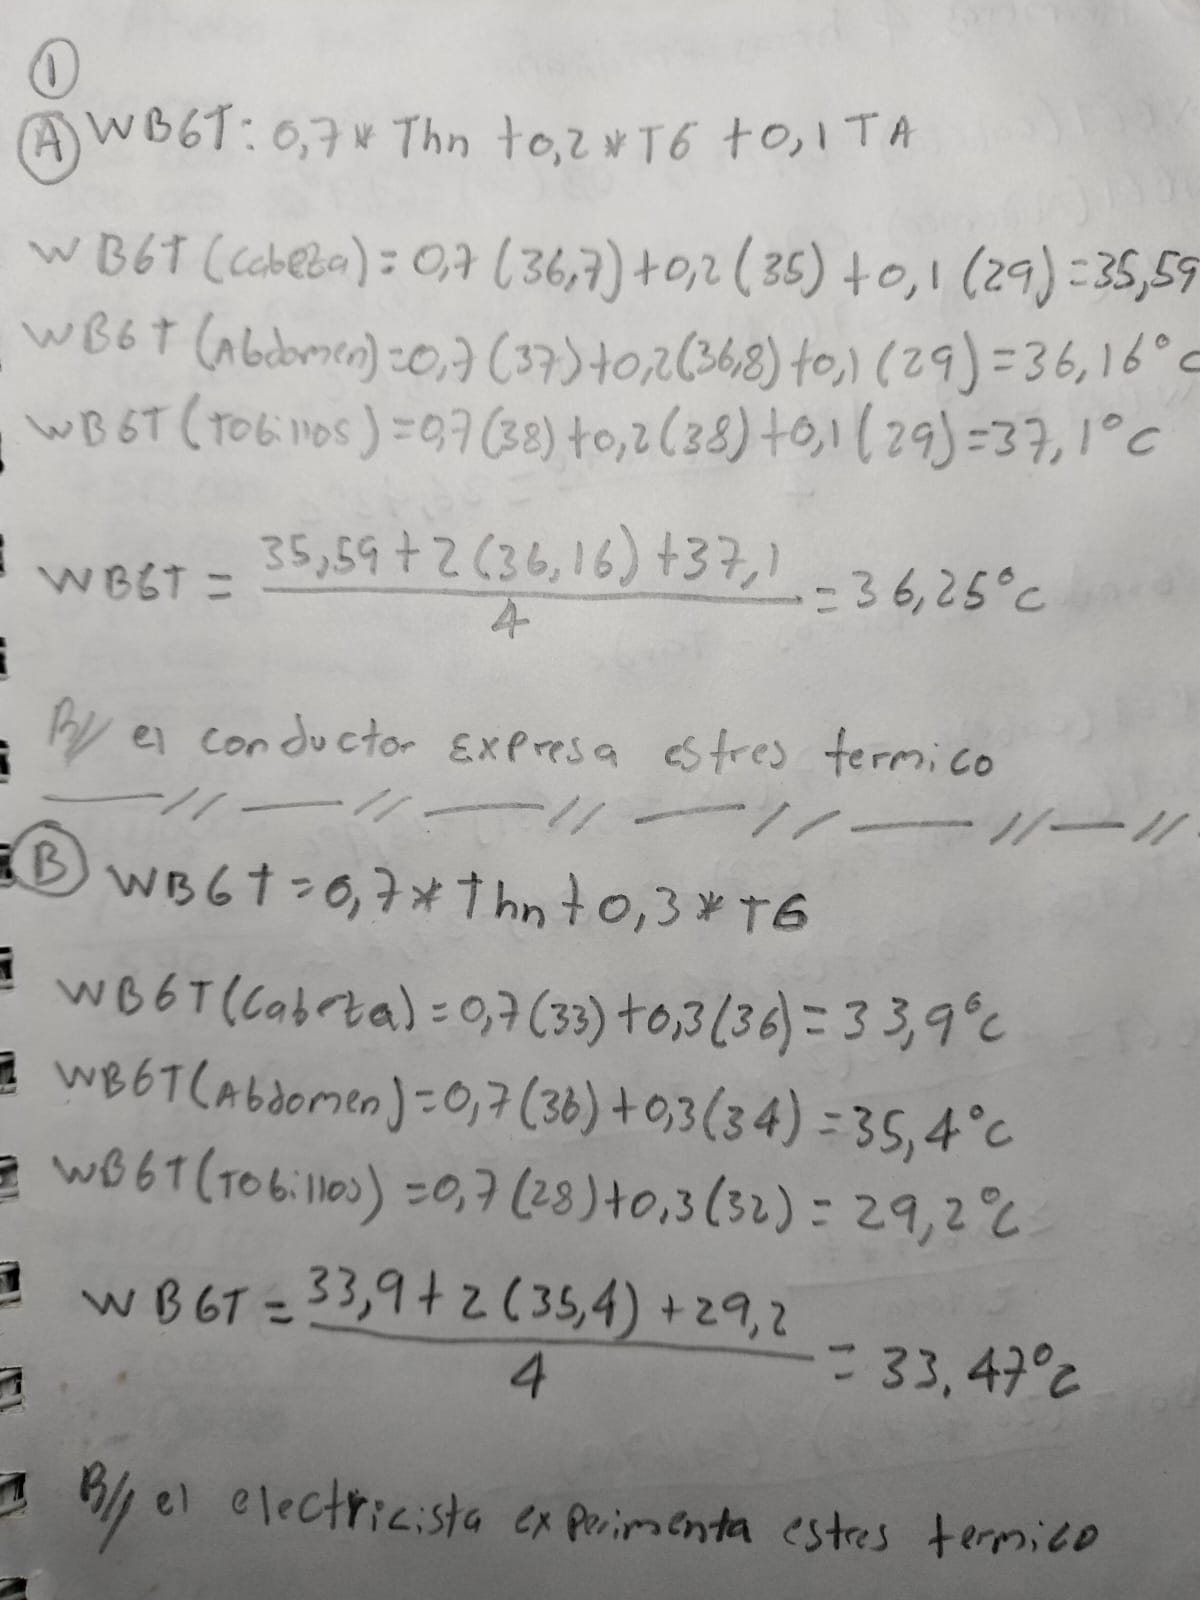 1
A WBGT: 0,7 * Thn + 0,2 * TG + 0,1 TA
WBGT (Cabeza) = 0,7 (36,7) + 0,2 (35) + 0,1 (29) = 35,59
WBGT (Abdomen) = 0,7 (37) + 0,2 (36,8) + 0,1 (29) = 36,16°C
WBGT (Tobillos) = 0,7 (38) + 0,2 (38) + 0,1 (29) = 37,1°C
WBGT = 35,59 + 2 (36,16) + 37,1 / 4 = 36,25°C
R// el conductor Expresa estres termico
— // — // — // — // — // — //
B WBGT = 0,7 * Thn + 0,3 * TG
WBGT (Cabeza) = 0,7 (33) + 0,3 (36) = 33,9°C
WBGT (Abdomen) = 0,7 (36) + 0,3 (34) = 35,4°C
WBGT (Tobillos) = 0,7 (28) + 0,3 (32) = 29,2°C
WBGT = 33,9 + 2 (35,4) + 29,2 / 4 = 33,47°C
R// el electricista experimenta estres termico